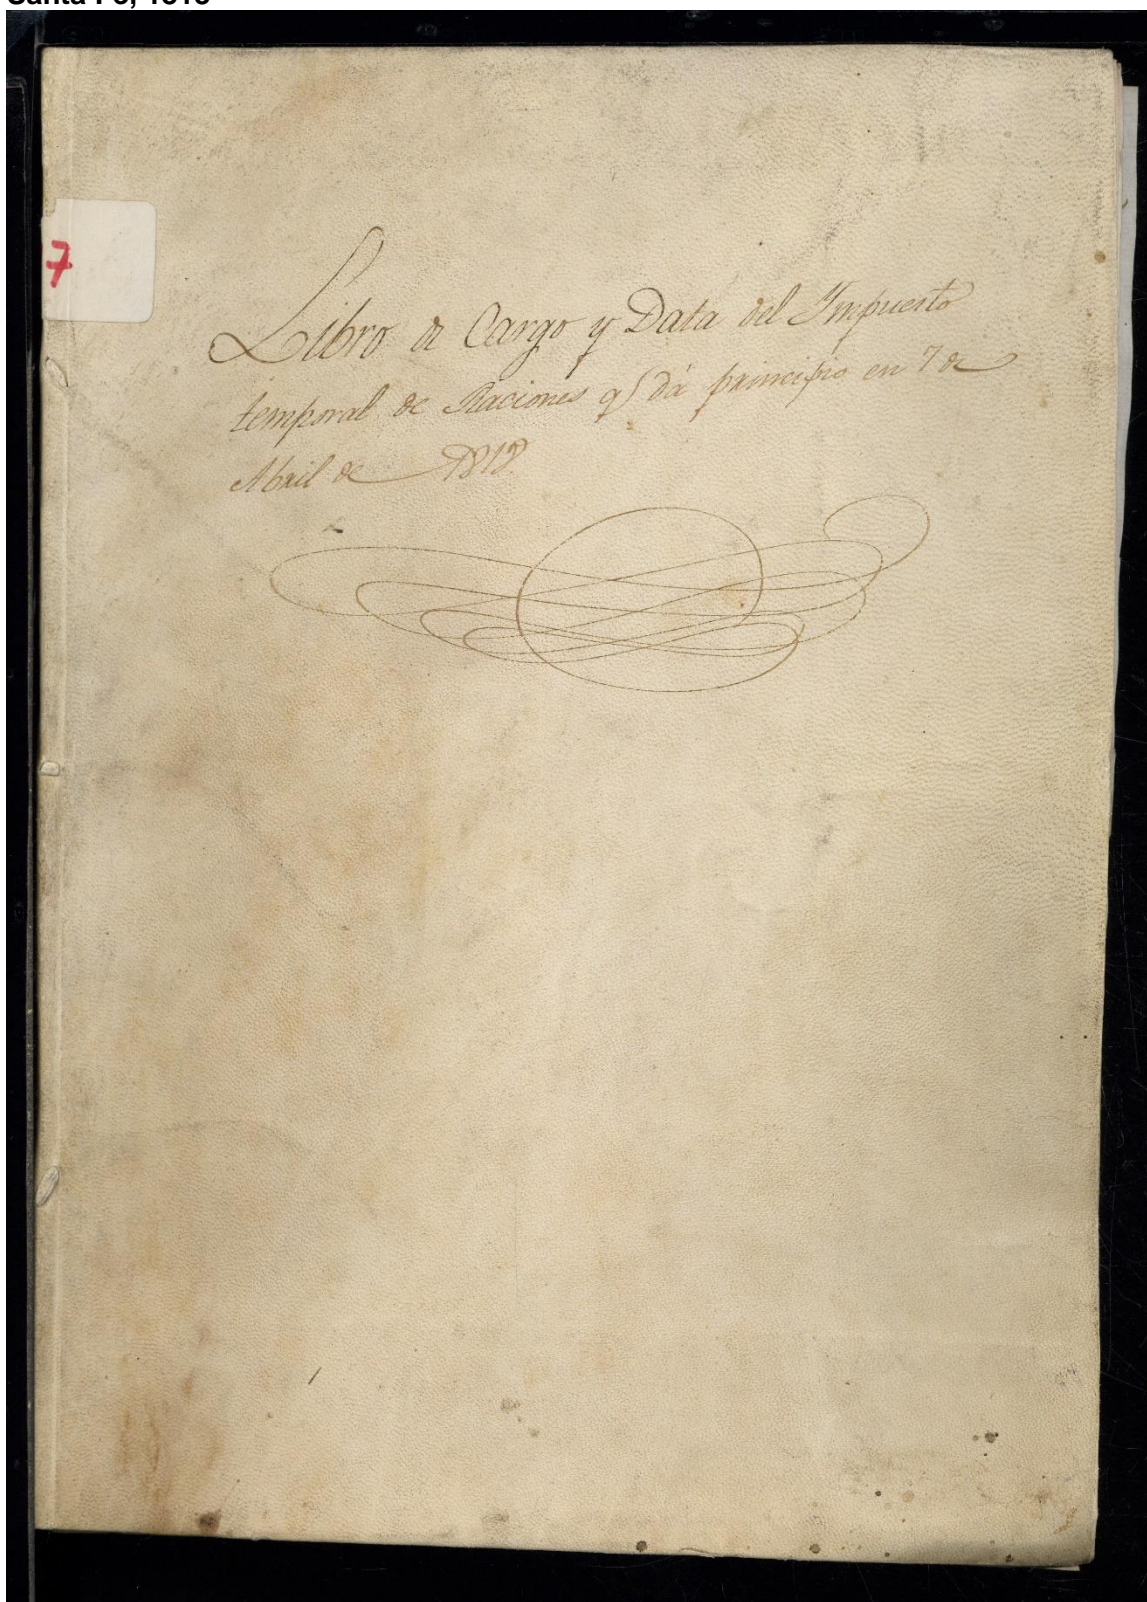 7
Libro de Cargo y Data del Impuesto
temporal de Raciones q dá principio en 7 de
Abril de 1818